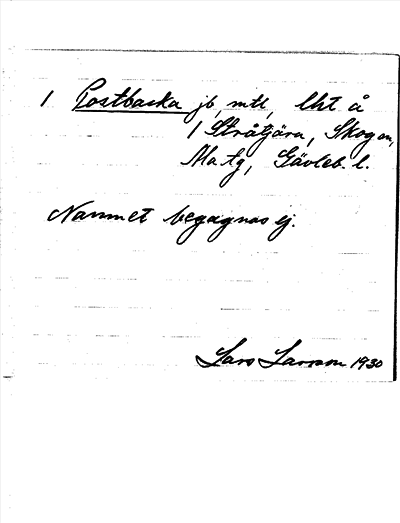 1 Postbacka jb, mtl, lht å
1 Stråtjära, Skogen,
Ma tg, Gävleb. l.
Namnet begagnas ej.
Lars Larsson 1930